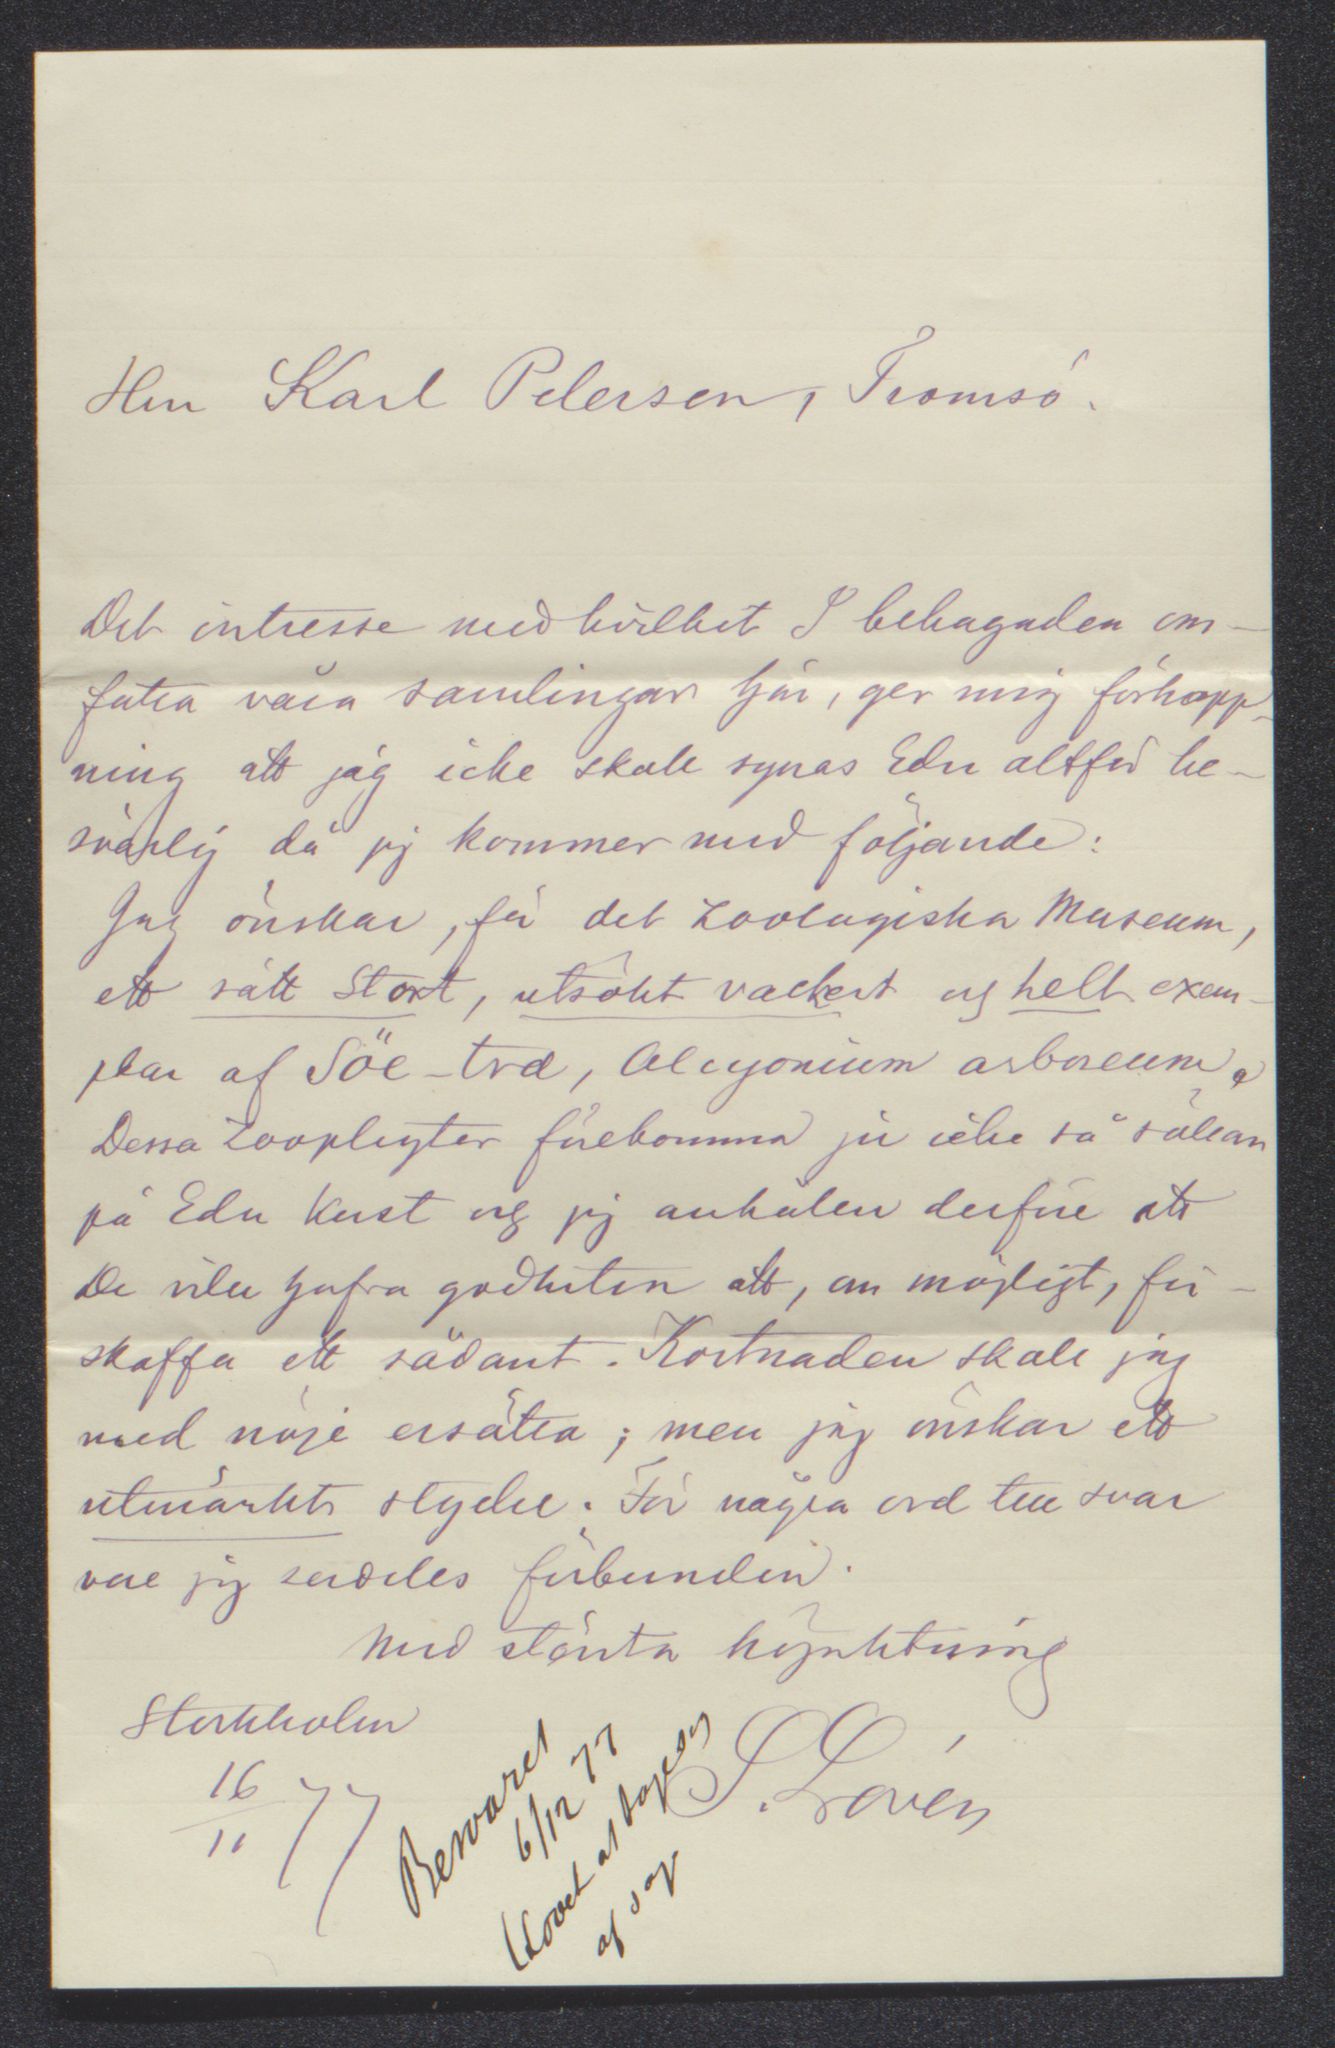 Herr Karl Petersen, Tromsö.
Det intresse med hvilket I behagaden om-
fatta våra samlingar här, ger mig förhopp-
ning att jag icke skall synas Eder alltför be-
svärlig då jag kommer med följande:
Jag önskar, för det Zoologiska Museum,
ett rätt stort, utsökt vackert og helt exem-
plar af Söe-træ, Alcyonium arboreum.
Dessa Zoophyter förekomma ju icke så sällan
på Eder kust og jag anhåller derföre att
De ville hafva godheten att, om möjligt, för-
skaffa ett sådant. Kostnaden skall jag
med nöje ersätta; men jag önskar ett
utmärkt stycke. För några ord till svar
vore jag serdeles förbunden.
Med största högaktning
S. Lovén
Stockholm
16/11 77
Besvaret
6/12 77
(Lovet at
af